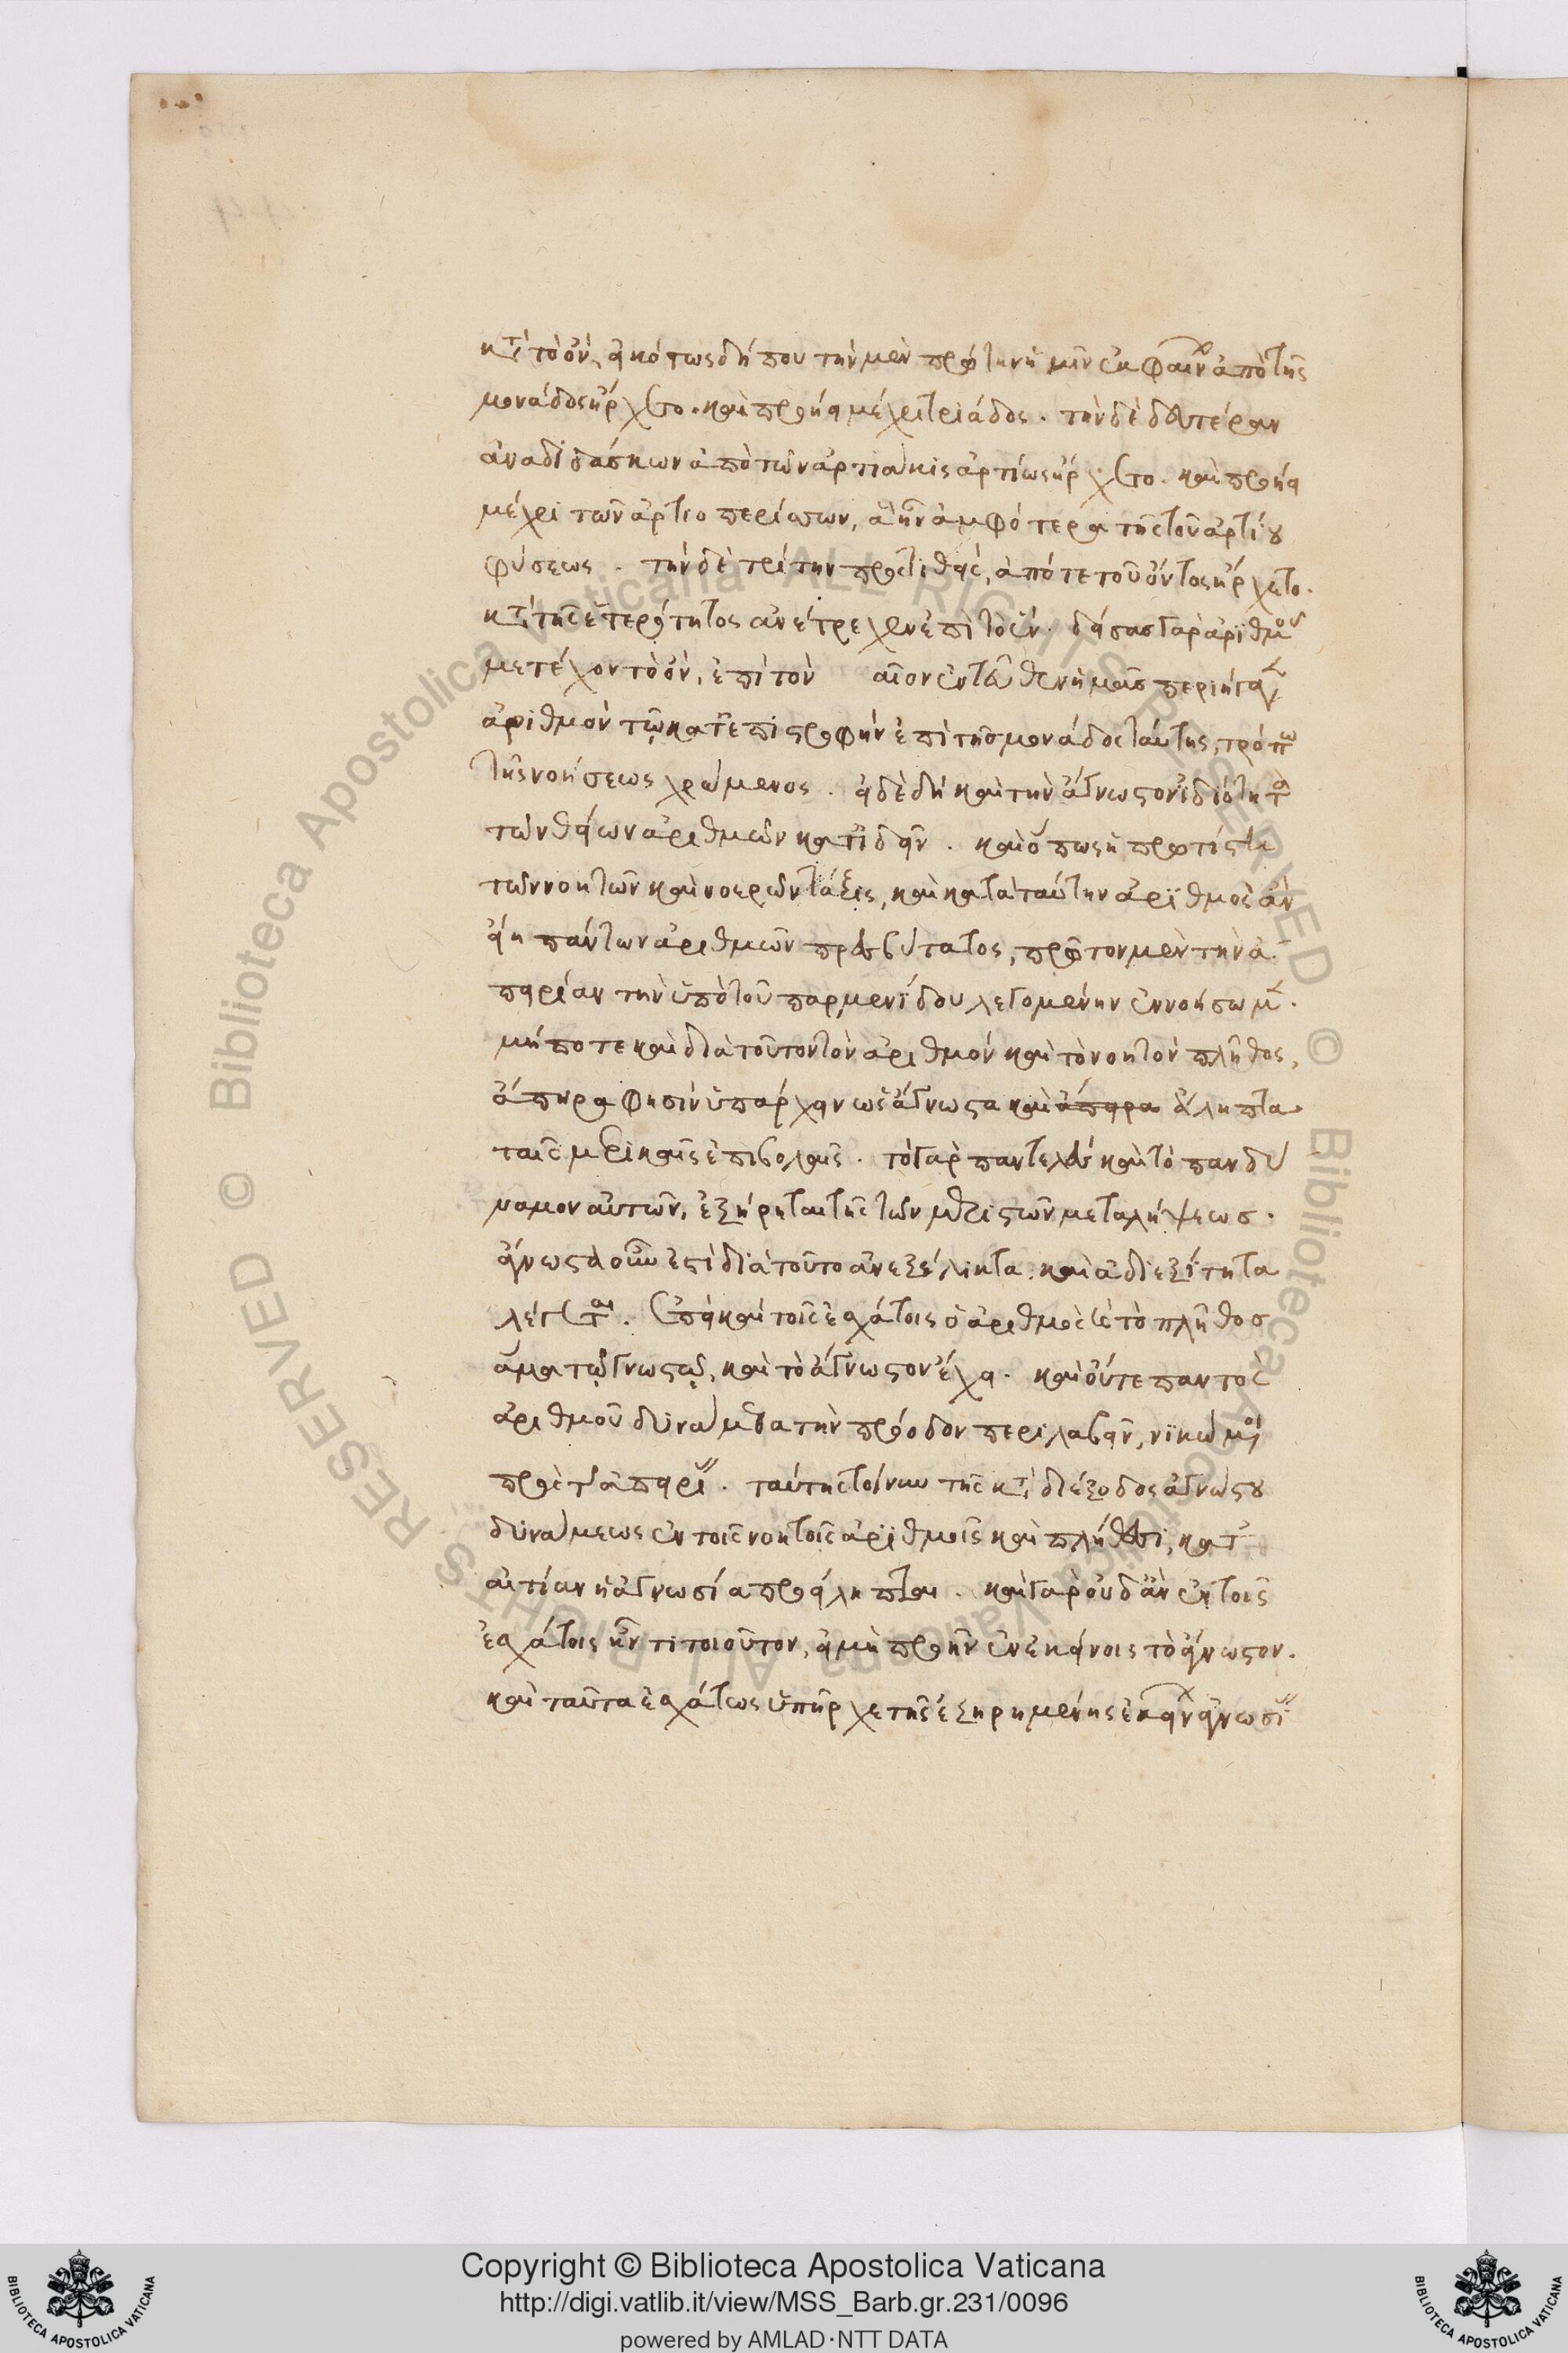 κατὰ τὸ ὄν, εἰκότως δήπου τὴν μὲν πρώτην ἡμῖν ἐκφαίνων ἀπὸ τῆς
μονάδος ἤρχετο. καὶ προήει μέχρι τριάδος. τὴν δὲ δευτέραν
ἀναδιδάσκων ἀπὸ τῶν ἀρτιάκις ἀρτίως ἤρχετο. καὶ προήει
μέχρι τῶν ἀρτιοπερίττων, ἃ ἦν ἀμφότερα τῆς τοῦ ἀρτίου
φύσεως. τὴν δὲ τρίτην προστιθεὶς, ἀπό τε τοῦ ὄντος ἤρχετο.
καὶ τῆς ἑτερότητος ἀνέτρεχεν ἐπὶ τὸ ἕν. δείσας γὰρ ἀριθμοῦ
μετέχον τὸ ὄν, ἐπὶ τὸν αῖον ἐντεῦθεν ἡμᾶς περιήγαγεν
ἀριθμὸν τῷ κατ' ἐπιστροφὴν ἐπὶ τῆς μονάδος ταύτης, τρόπω
τῆς νοήσεως χρώμενος. εἰ δὲ δὴ καὶ τὴν ἄγνωστον ἰδιότητα
τῶν θείων ἀριθμῶν κατιδεῖν. καὶ ὅπως ἡ πρωτίστη
τῶν νοητῶν καὶ νοερῶν τάξις, καὶ κατὰ ταύτην ἀριθμὸς ἂν
εἴη πάντων ἀριθμῶν πρεσβύτατος, πρῶτον μὲν τὴν ἀ
πειρίαν τὴν ὑπὸ τοῦ παρμενίδου λεγομένην ἐννοήσωμεν.
μήποτε καὶ διὰ τοῦτον τὸν ἀριθμὸν καὶ τὸν νοητὸν πλῆθος,
ἄπειρα φησὶν ὑπάρχειν ὡς ἄγνωστα καὶ ἄπειρα ἄληπτα
ταῖς μερικαῖς ἐπιβολαῖς. τὸ γὰρ παντελὲς καὶ τὸ πανδύ
ναμον αὐτῶν, ἐξήρηται τῆς τῶν μεριστῶν μεταλήψεως.
ἄγνωστα οὖν ἐστὶ διὰ τοῦτο ἀνεξέλικτα. καὶ ἀδιεξίτητα
λέγεται. ἐπεὶ καὶ τοῖς ἐσχάτοις ὁ ἀριθμὸς καὶ τὸ πλῆθος
ἅμα τῷ γνωστῷ, καὶ τὸ ἄγνωστον ἔχει. καὶ οὔτε παντὸς
ἀριθμοῦ δυνάμεθα τὴν πρόοδον περιλαβεῖν, νικώμενοι
πρὸς τὴν ἀπειρίαν. ταύτης τοίνυν τῆς κατὰ διέξοδος ἀγνώστου
δυνάμεως ἐν τοῖς νοητοῖς ἀριθμοῖς καὶ πλήθεσι, κατ'
αἰτίαν ἡ ἀγνωσία προείληπται. καὶ γὰρ οὐδ' ἂν ἐν τοῖς
ἐσχάτοις ἦν τι τοιοῦτον, εἰ μὴ προῆν ἐν ἐκείνοις τὸ ἄγνωστον.
καὶ ταῦτα ἐσχάτως ὑπῆρχε τῆς ἐξηρημένης ἐκείνων ἀγνωσίας
Copyright © Biblioteca Apostolica Vaticana
http://digi.vatlib.it/view/MSS_Barb.gr.231/0096
powered by AMLAD·NTT DATA